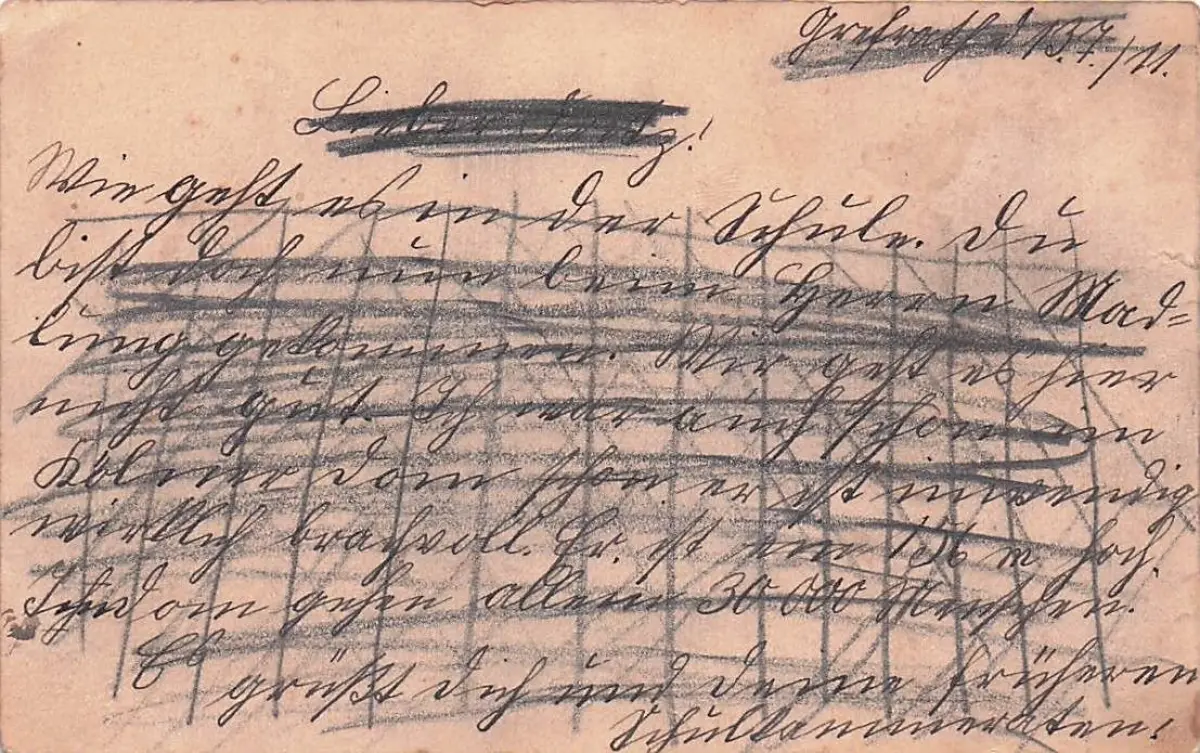 Grefrath d 13.7./11.
Lieber Fritz!
Wie geht es in der Schule. Du
bist doch nun beim Herrn Mad=
lung gekommen. Mir geht es hier
nicht gut. Ich war auch schon im
Kölner dom schon er ist inwendig
wirklich brachvoll. Er ist nun 156 m hoch.
dom gehen allein 30 000 Menschen.
Es
grüßt dich und deine früheren
Schulkammeraten!